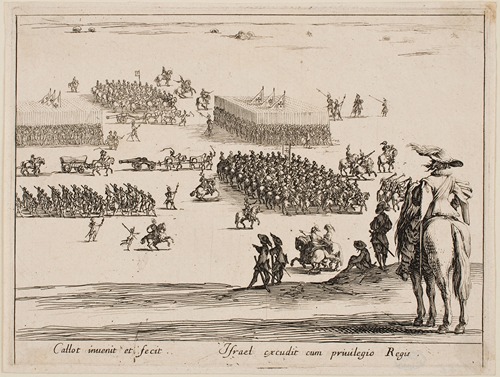 Callot inuenit et fecit. Israel excudit cum priuilegio Regis